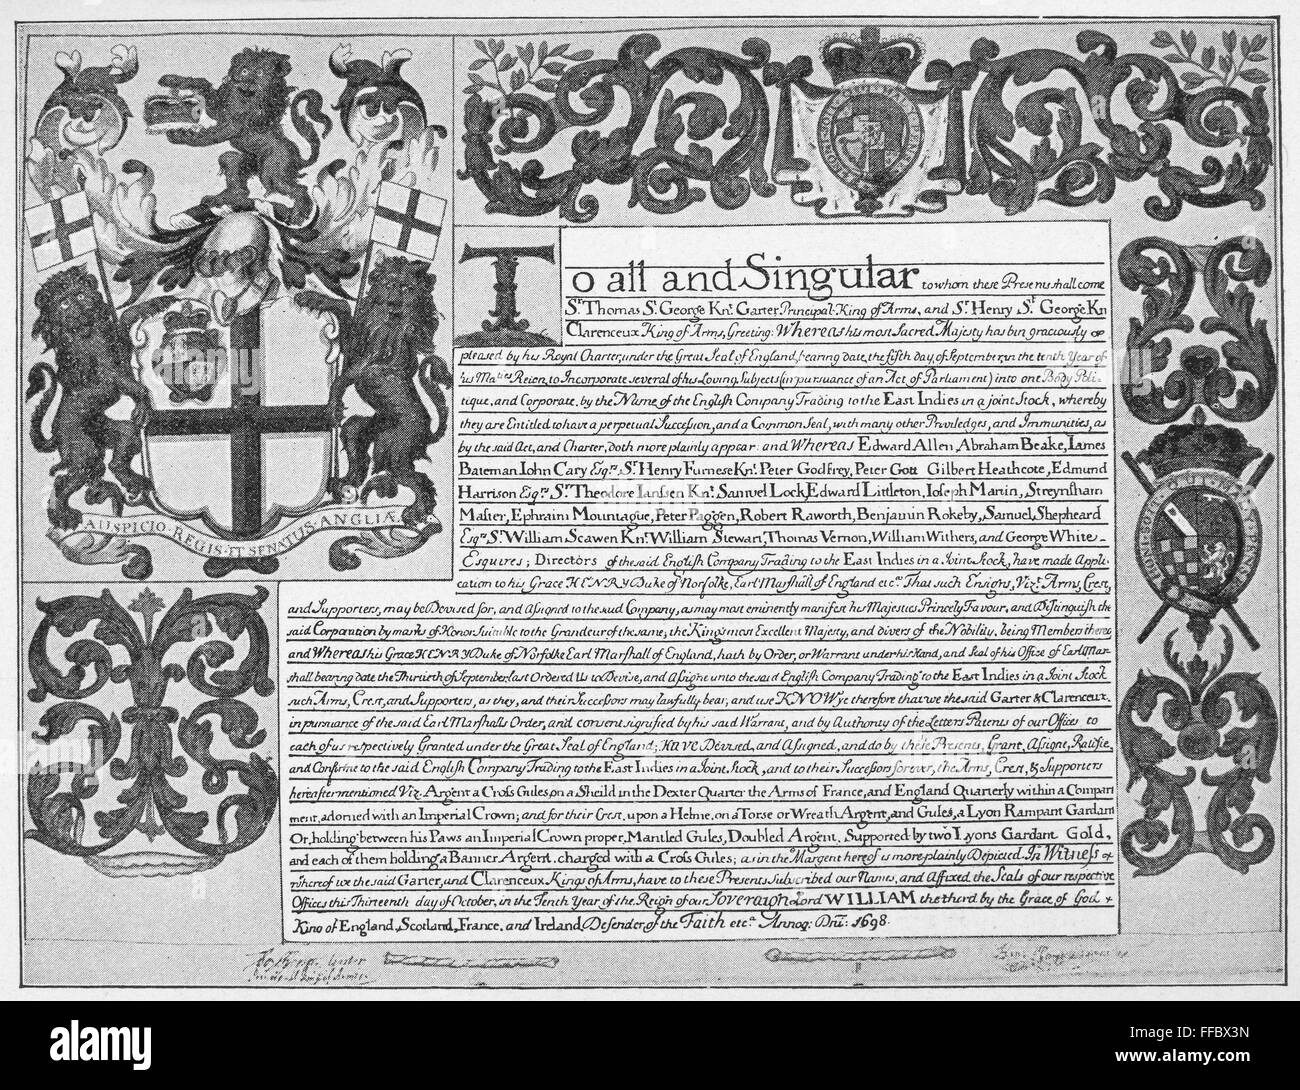 HONI SOIT QUI MAL Y PENSE
To all and Singular to whom these Presents shall come
Sr. Thomas St. George Knt. Garter Principal King of Arms, and Sr. Henry St. George Kn
Clarenceux King of Arms, Greeting: Whereas his most Sacred Majesty has bin graciously
pleased by his Royal Charter, under the Great Seal of England, bearing date, the fifth day, of September, in the tenth Year of
his Maties Reign, to Incorporate several of his Loving Subjects (in pursuance of an Act of Parliament) into one Body Poli-
tique, and Corporate, by the Name of the English Company Trading to the East Indies in a joint Stock, whereby
they are Entitled to have a perpetual Succession, and a Common Seal, with many other Priviledges, and Immunities, as
by the said Act, and Charter, doth more plainly appear and Whereas Edward Allen, Abraham Beake, Iames
Bateman Iohn Cary Esqrs. Sr. Henry Furnese Knt. Peter Godfrey, Peter Gott Gilbert Heathcote, Edmund
Harrison Esqrs. Sr. Theodore Ianssen Knt. Samuel Lock, Edward Littleton, Ioseph Martin, Streynsham
Master, Ephraim Mountague, Peter Paggen, Robert Raworth, Benjamin Rokeby, Samuel Shepheard
Esqrs. Sr. William Scawen Knt. William Stewart, Thomas Vernon, William Withers, and George White
Esquires; Directors of the said English Company Trading to the East Indies in a Joint Stock, have made Appli-
cation to his Grace HENRY Duke of Norfolke, Earl Marshall of England etca. That such Ensigns, Vizt. Arms, Crest,
and Supporters, may be Devised for, and assigned to the said Company, as may most eminently manifest his Majesties Princely Favour, and Distinguish the
said Corporation by marks of Honor Suitable to the Grandeur of the same, the Kings most Excellent Majesty, and divers of the Nobility, being Members thereof
and Whereas his Grace HENRY Duke of Norfolke Earl Marshall of England, hath by Order, or Warrant under his Hand, and Seal of his Office of Earl Mar-
shall bearing date the Thirtieth of September last Ordered Us to Devise, and Assigne unto the said English Company Trading to the East Indies in a Joint Stock
such Arms, Crest, and Supporters, as they, and their Successors may lawfully bear, and use KNOW ye therefore that we the said Garter & Clarenceux
in pursuance of the said Earl Marshalls Order, and consent signified by his said Warrant, and by Authority of the Letters Patents of our Offices to
each of us respectively Granted under the Great Seal of England; HAVE Devised, and Assigned, and do by these Presents, Grant, Assigne, Ratifie
and Confirme to the said English Company Trading to the East Indies in a Joint Stock, and to their Successors forever, the Arms, Crest, & Supporters
hereafter mentioned Viz. Argent a Cross Gules, on a Sheild in the Dexter Quarter the Arms of France, and England Quarterly within a Compart
ment, adorned with an Imperial Crown; and for their Crest, upon a Helme, on a Torse or Wreath Argent, and Gules, a Lyon Rampant Gardant
Or, holding between his Paws an Imperial Crown proper, Mantled Gules, Doubled Argent, Supported by two Lyons Gardant Gold,
and each of them holding a Banner Argent charged with a Cross Gules; as in the Margent hereof is more plainly Depicted. In Witness
whereof we the said Garter, and Clarenceux Kings of Arms, have to these Presents Subscribed our Names, and Affixed the Seals of our respective
Offices this Thirteenth day of October, in the Tenth Year of the Reign of our Soveraign Lord WILLIAM the third by the Grace of God
King of England, Scotland, France, and Ireland, Defender of the Faith etca. Annoq: Dni: 1698.
AUSPICIO REGIS ET SENATUS ANGLIÆ
HONI SOIT QUI MAL Y PENSE
alamy
www.alamy.com
FFBX3N